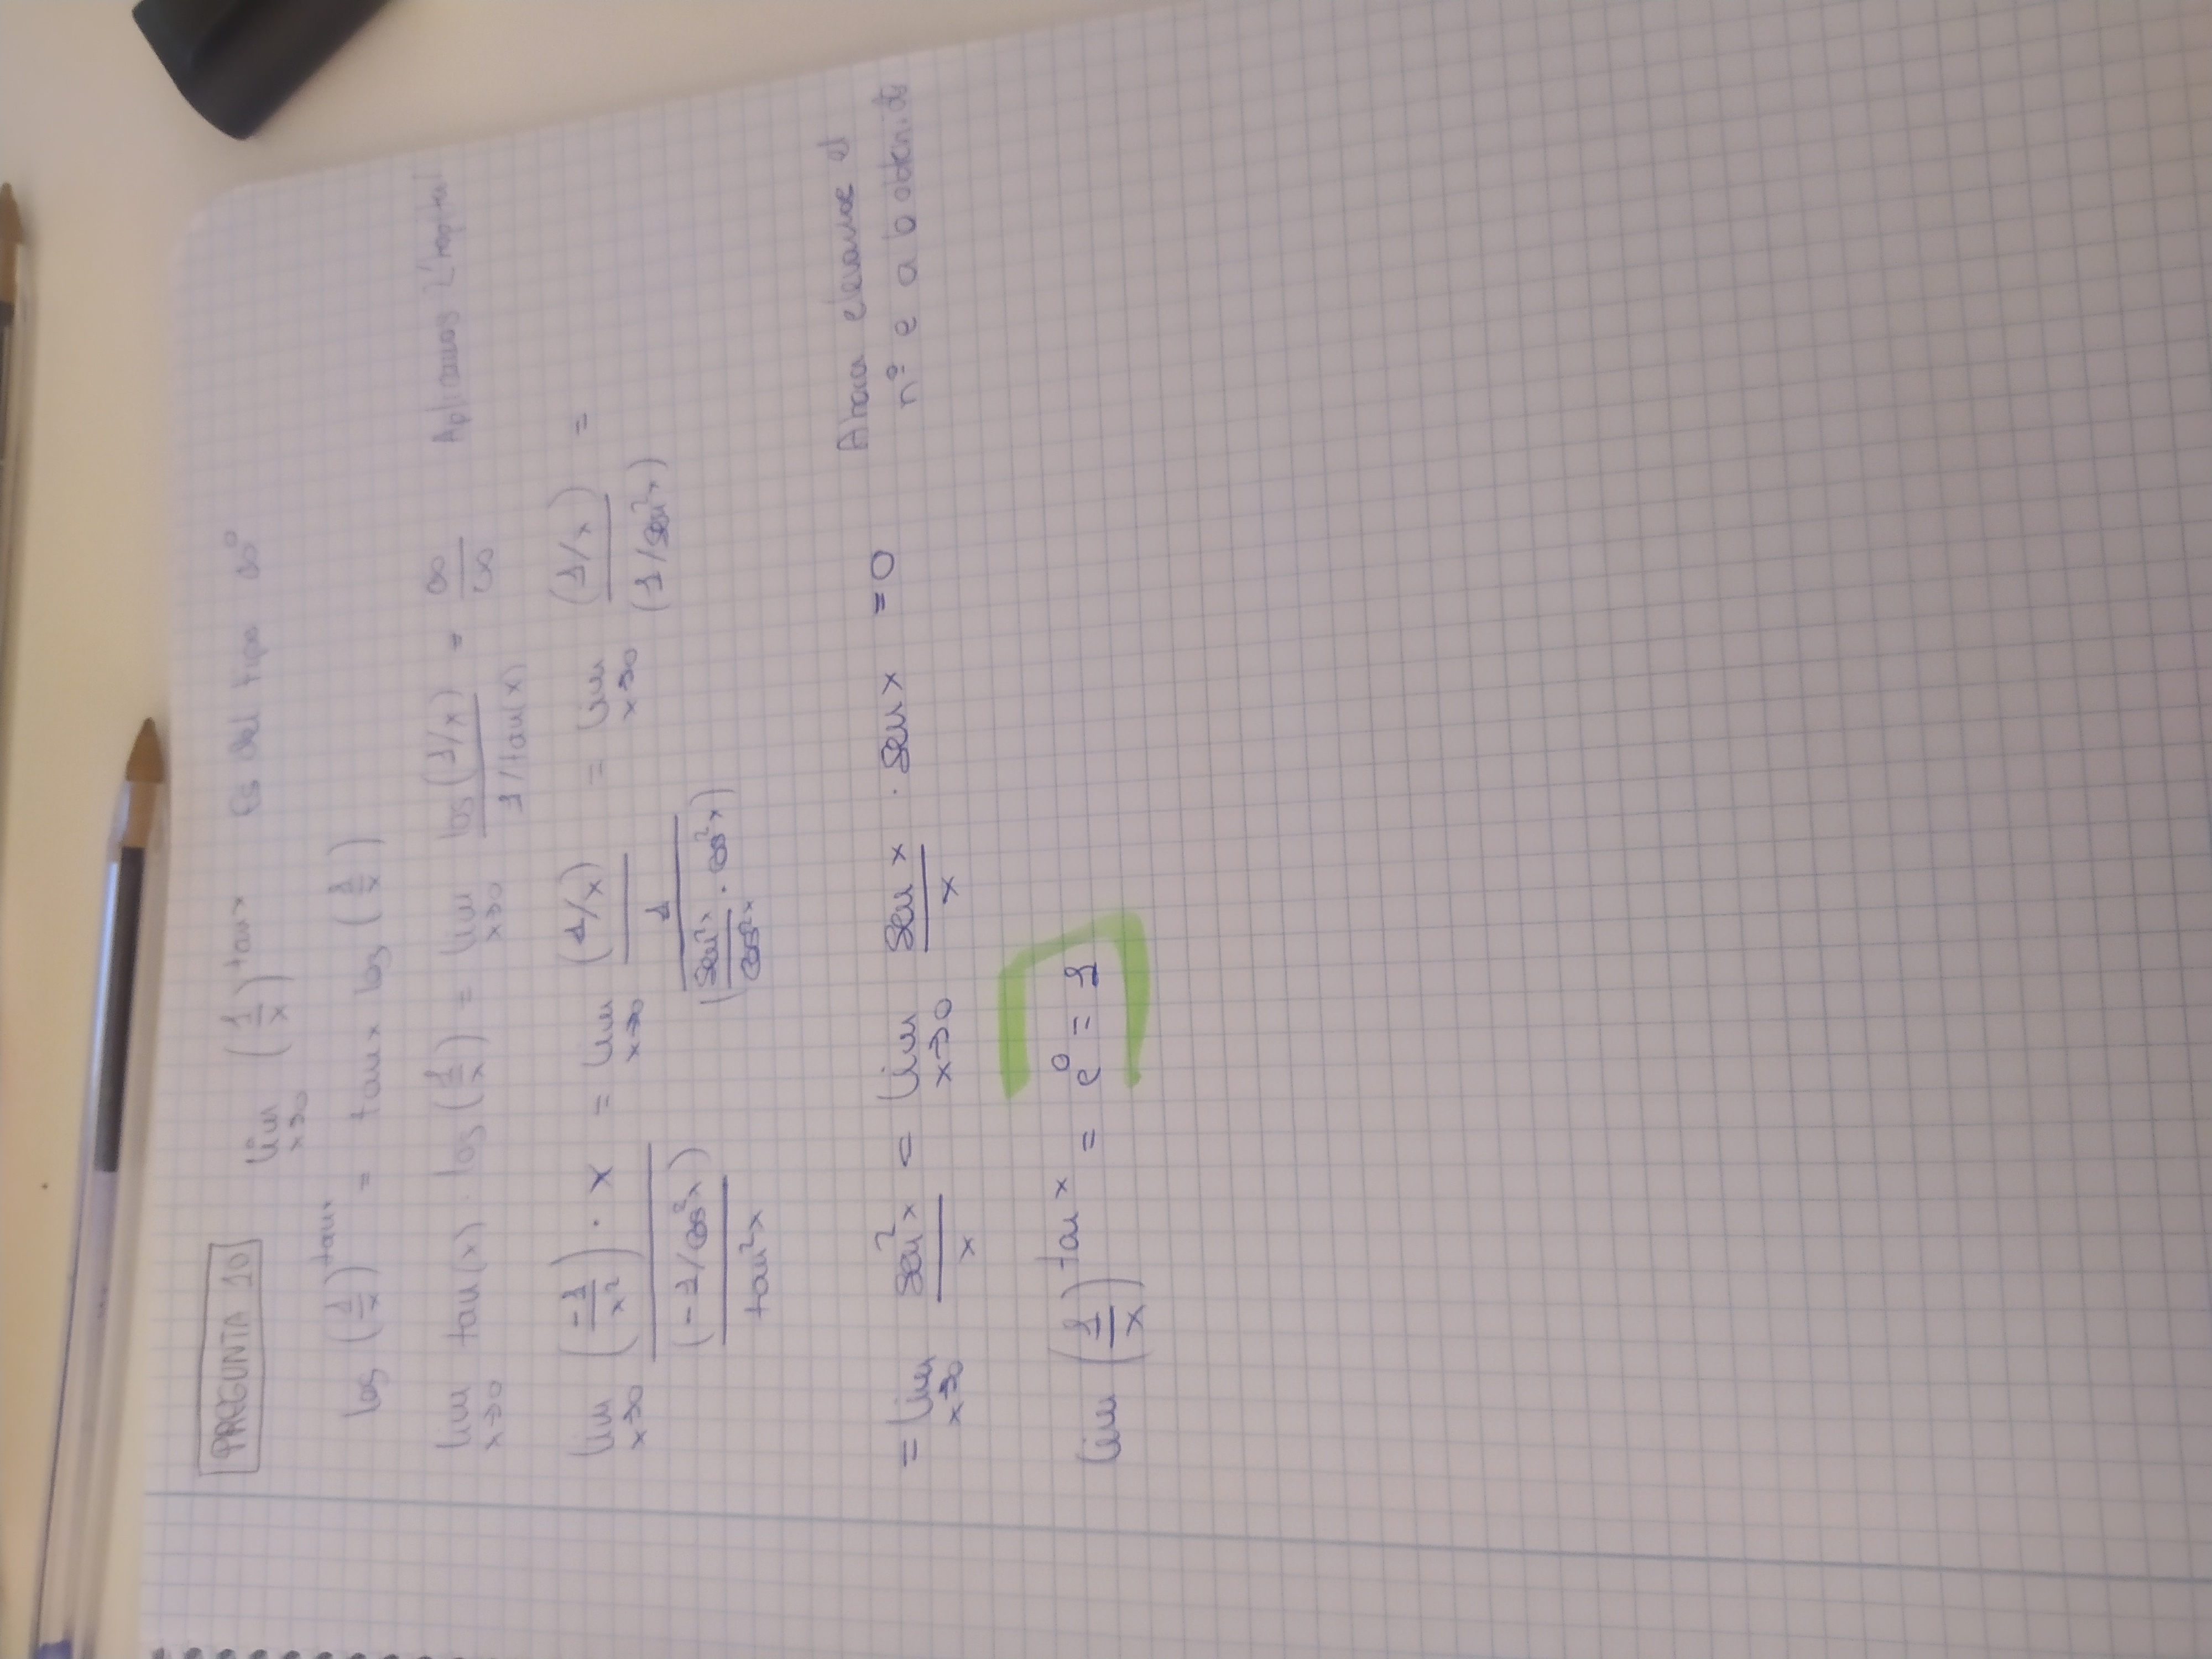 PREGUNTA 10 lim x→0 (1/x)^tan x Es del tipo ∞^0
log (1/x)^tan x = tan x log (1/x)
lim x→0 tan(x) · log (1/x) = lim x→0 log(1/x) / (1/tan(x)) = ∞/∞ Aplicamos L'hopital
lim x→0 ((-1/x²) · x) / ((-1/cos²x) / tan²x) = lim x→0 (1/x) / (1 / (sen²x/cos²x · cos²x)) = lim x→0 (1/x) / (1/sen²x) =
= lim x→0 sen²x / x = lim x→0 sen x / x · sen x = 0 Ahora elevamos el
nº e a lo obtenido
lim (1/x)^tan x = e^0 = 1